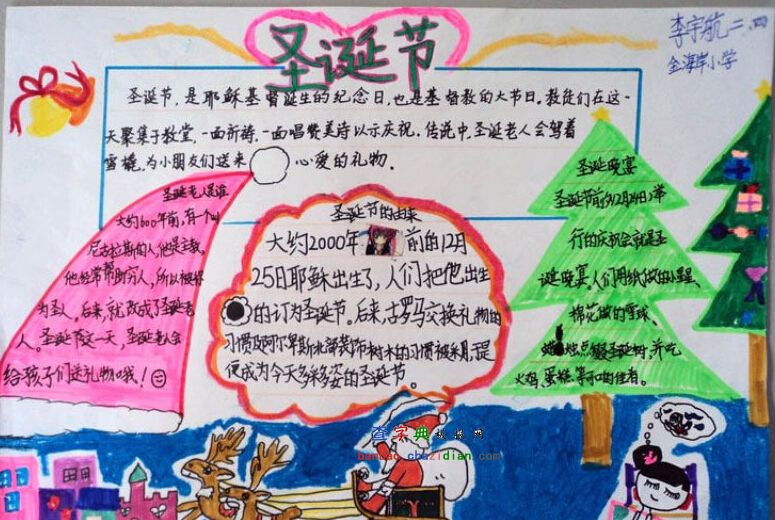 圣诞节
李宇航二、四
金海岸小学
圣诞节，是耶稣基督诞生的纪念日，也是基督教的大节日。教徒们在这一
天聚集于教堂，一面祈祷，一面唱赞美诗以示庆祝。传说中，圣诞老人会驾着
雪橇，为小朋友们送来 心爱的礼物。
圣诞老人是谁
大约1600年前，有个叫
尼古拉斯的人，他是主教，
他经常帮助穷人，所以被称
为圣人，后来，就改成了圣诞老
人。圣诞节这一天，圣诞老人会
给孩子们送礼物哦！
圣诞节的由来
大约2000年 前的12月
25日耶稣出生了，人们把他出生
的 订为圣诞节。后来，古罗马交换礼物的
习惯及阿尔卑斯 部装饰树木的习惯被采用，
便成为今天多姿多 的圣诞节。
圣诞晚宴
圣诞节前夕12月24日举
行的庆祝会就是圣
诞晚宴，人们用纸做的小星星、
棉花做的雪球、
蜡烛点缀圣诞树，并吃
火鸡、蛋糕等可口的佳肴。
查字典 报 网
banbao.chazidian.com